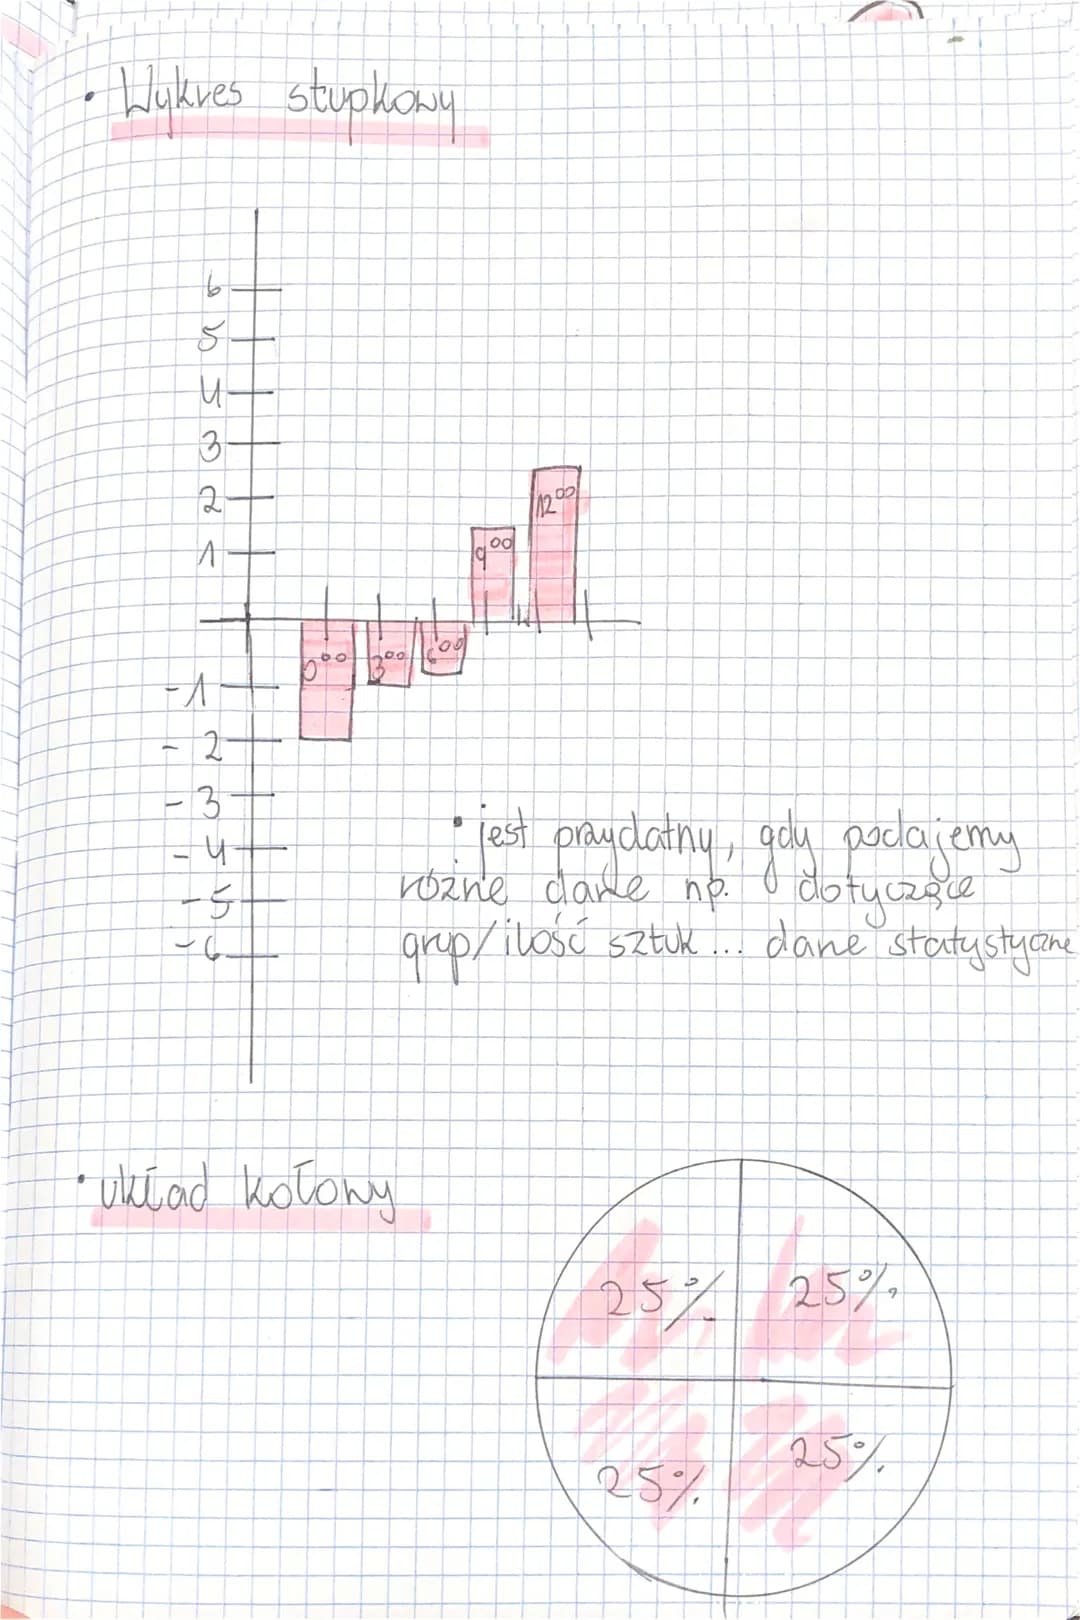 • Wykres słupkowy
6
5
4
3
2
1
12⁰⁰
9⁰⁰
0⁰⁰ 3⁰⁰ 6⁰⁰
-1
-2
-3
-4
-5
-6
• jest przydatny, gdy podajemy
różne dane np. dotyczące
grup/ilość sztuk... dane statystyczne
• układ kołowy
25% 25%
25% 25%